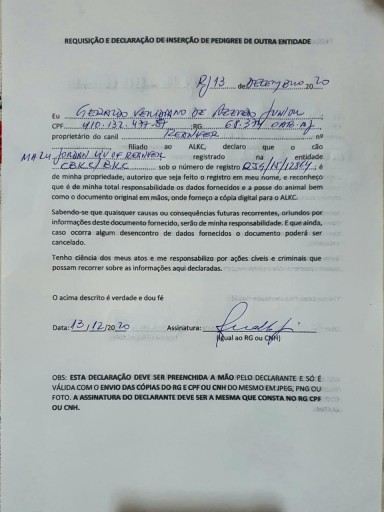 REQUISIÇÃO E DECLARAÇÃO DE INSERÇÃO DE PEDIGREE DE OUTRA ENTIDADE
RJ 13 de DEZEMBRO 20 20
Eu GERALDO DE AZEVEDO JUNIOR
CPF RG 68.374 OAB-RJ
proprietário do canil REANVER nº
filiado ao ALKC, declaro que o cão
OF REANVER registrado na entidade
CBKC/BKC sob o número de registro é
de minha propriedade, autorizo que seja feito o registro em meu nome, e reconheço
que é de minha total responsabilidade os dados fornecidos e a posse do animal bem
como o documento original em mãos, onde forneço a cópia digital para o ALKC.
Sabendo-se que quaisquer causas ou consequências futuras recorrentes, oriundos por
informações deste documento fornecido, serão de minha responsabilidade. E que ainda,
caso ocorra algum desencontro de dados fornecidos o documento poderá ser
cancelado.
Tenho ciência dos meus atos e me responsabilizo por ações cíveis e criminais que
possam recorrer as informações aqui declaradas.
O acima descrito é verdade e dou fé
Data: 13/12/20 20 Assinatura:
(igual ao RG ou CNH)
OBS: ESTA DECLARAÇÃO DEVE SER PREENCHIDA A MÃO PELO DECLARANTE E SÓ É
VÁLIDA COM O ENVIO DAS CÓPIAS DO RG E CPF OU CNH DO MESMO EM JPEG, PNG OU
FOTO. A ASSINATURA DO DECLARANTE DEVE SER A MESMA QUE CONSTA NO RG CPF
OU CNH.